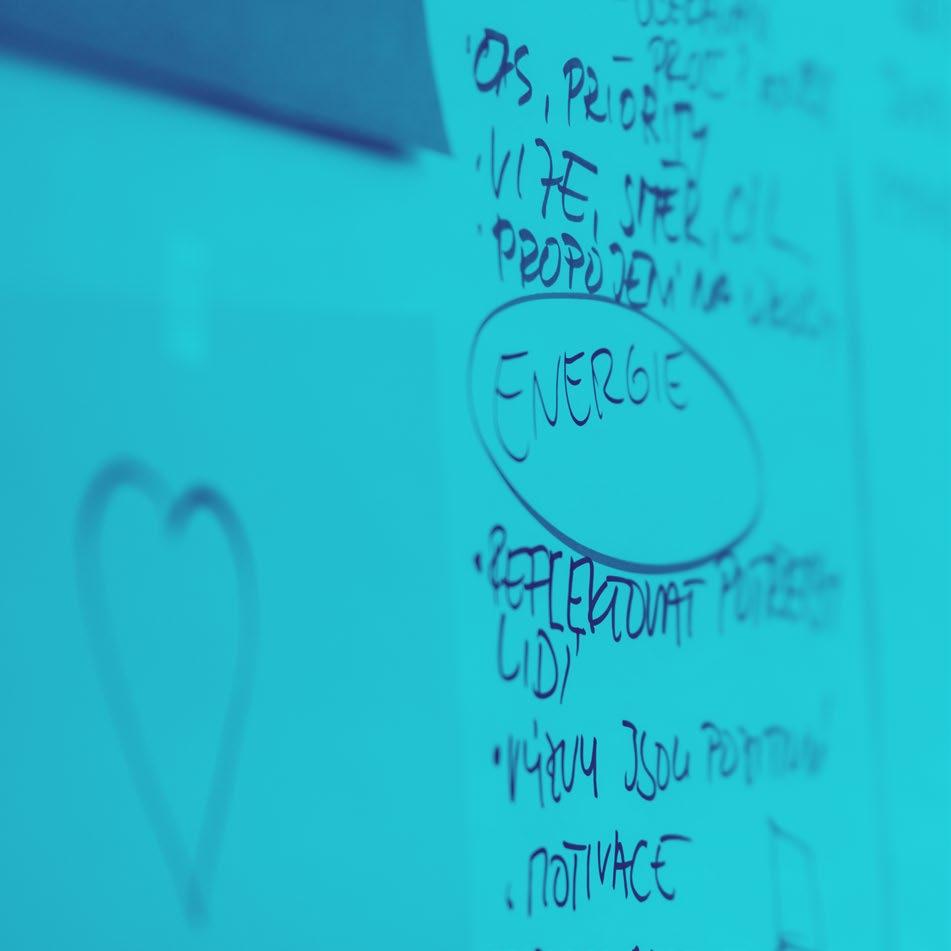 PROČ?
• ČAS, PRIORITY
• VIZE, SMĚR, CÍL
• PROPOJENÍ NA
ENERGIE
• REFLEKTOVAT POTŘEBY
LIDÍ
• VÝZVY JSOU POZITIVNÍ
• MOTIVACE